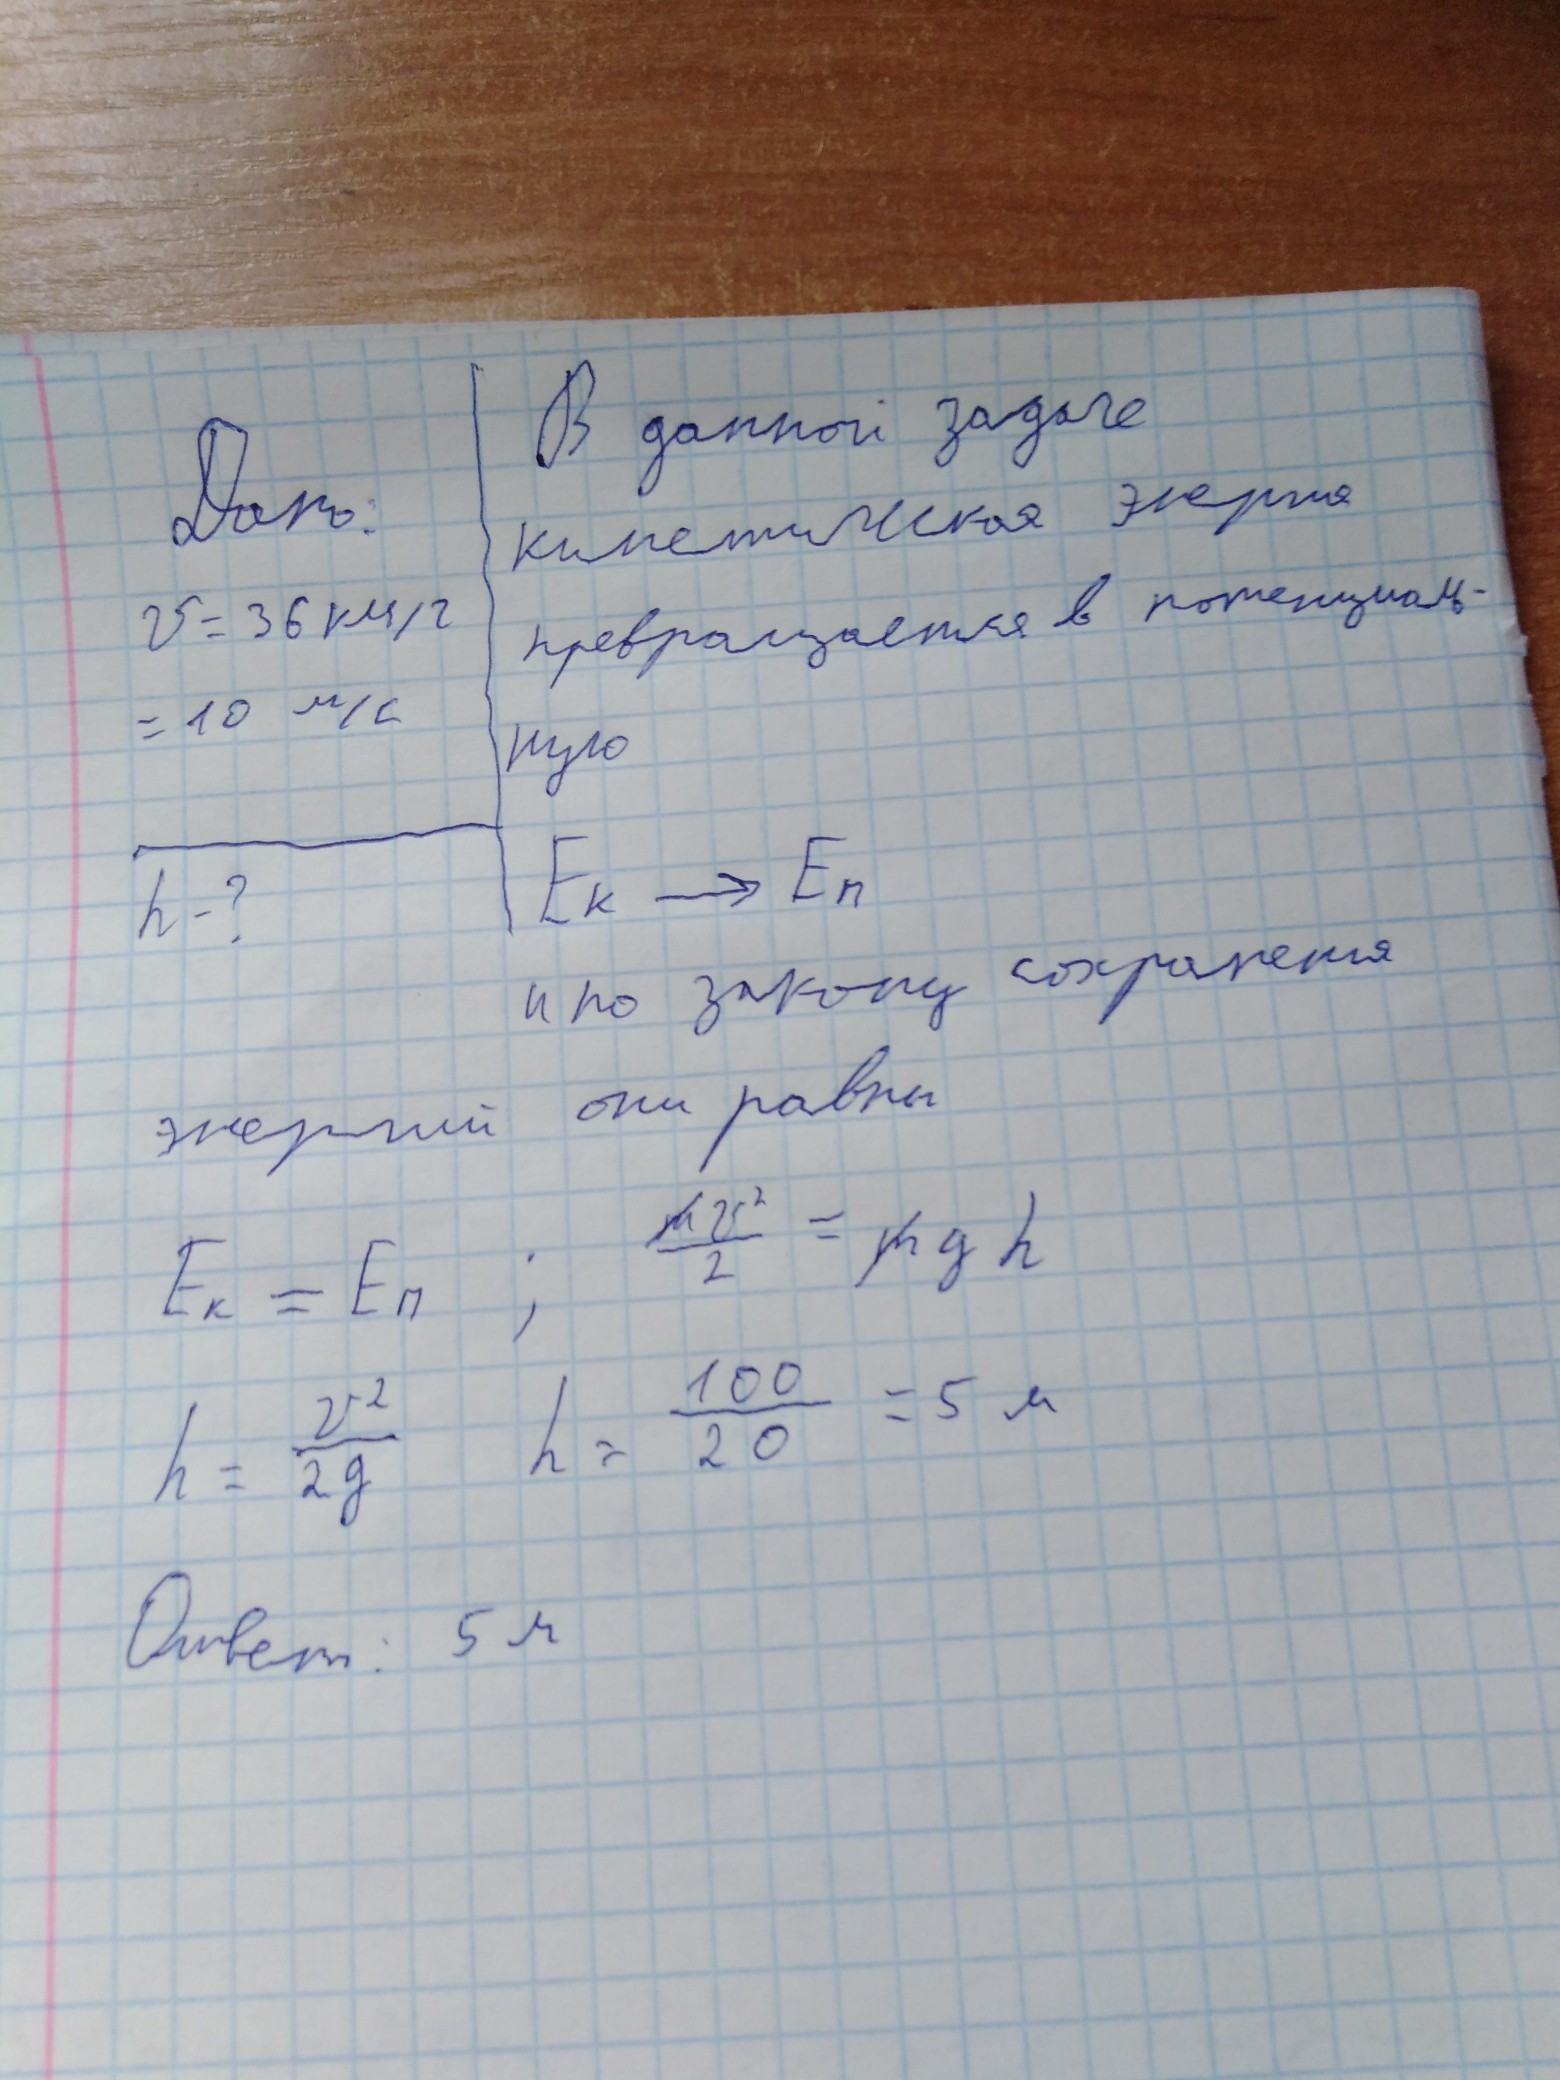 Дано:
v = 36 км/г
= 10 м/с
h - ?
В данной задаче
кинетическая энергия
превращается в потенциаль-
ную
Eк → Eп
и по закону сохранения
энергий они равны
Eк = Eп ; mv²/2 = mgh
h = v²/2g h = 100/20 = 5 м
Ответ: 5 м